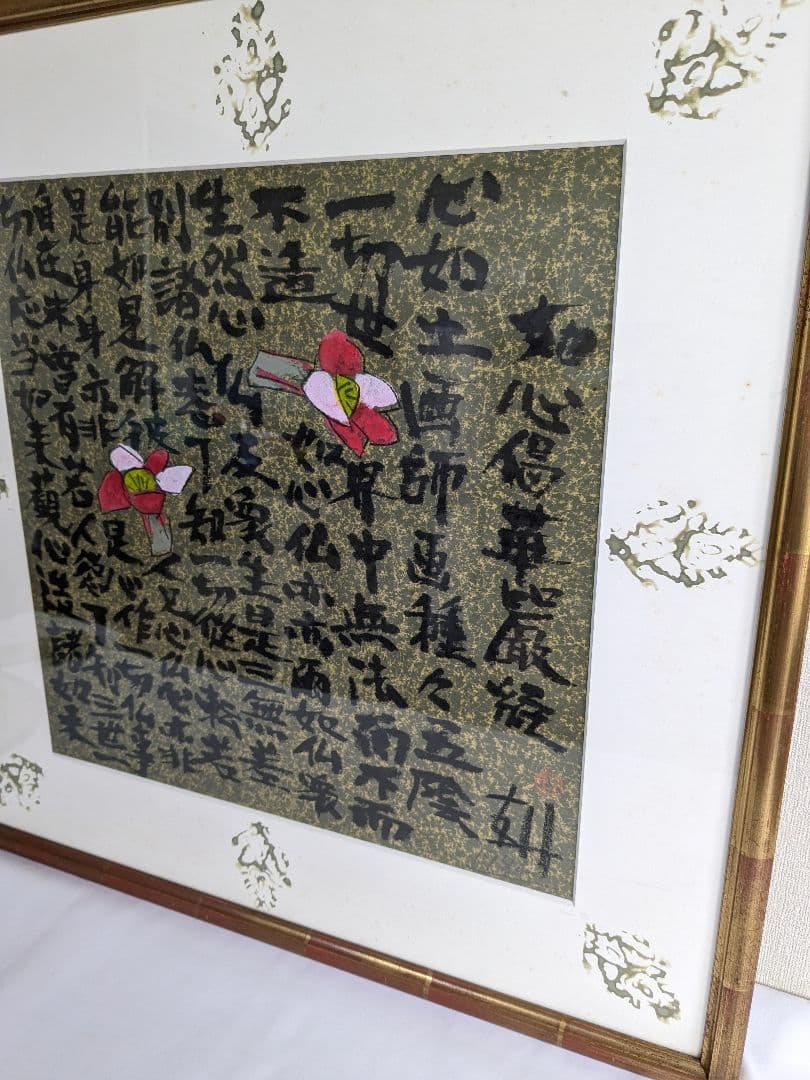 如心偈華嚴経
心如工画師画種々五陰
一切世界中無法而不而
不造如心仏亦亦爾如仏衆
生然心仏及衆生是三無差
別諸仏悉了知一切従心転若
能如是解彼人見心仏心亦非
是身身亦非是心作一切仏事
自在未曽有若人欲了知三世一
切仏応当如来観心造諸如来